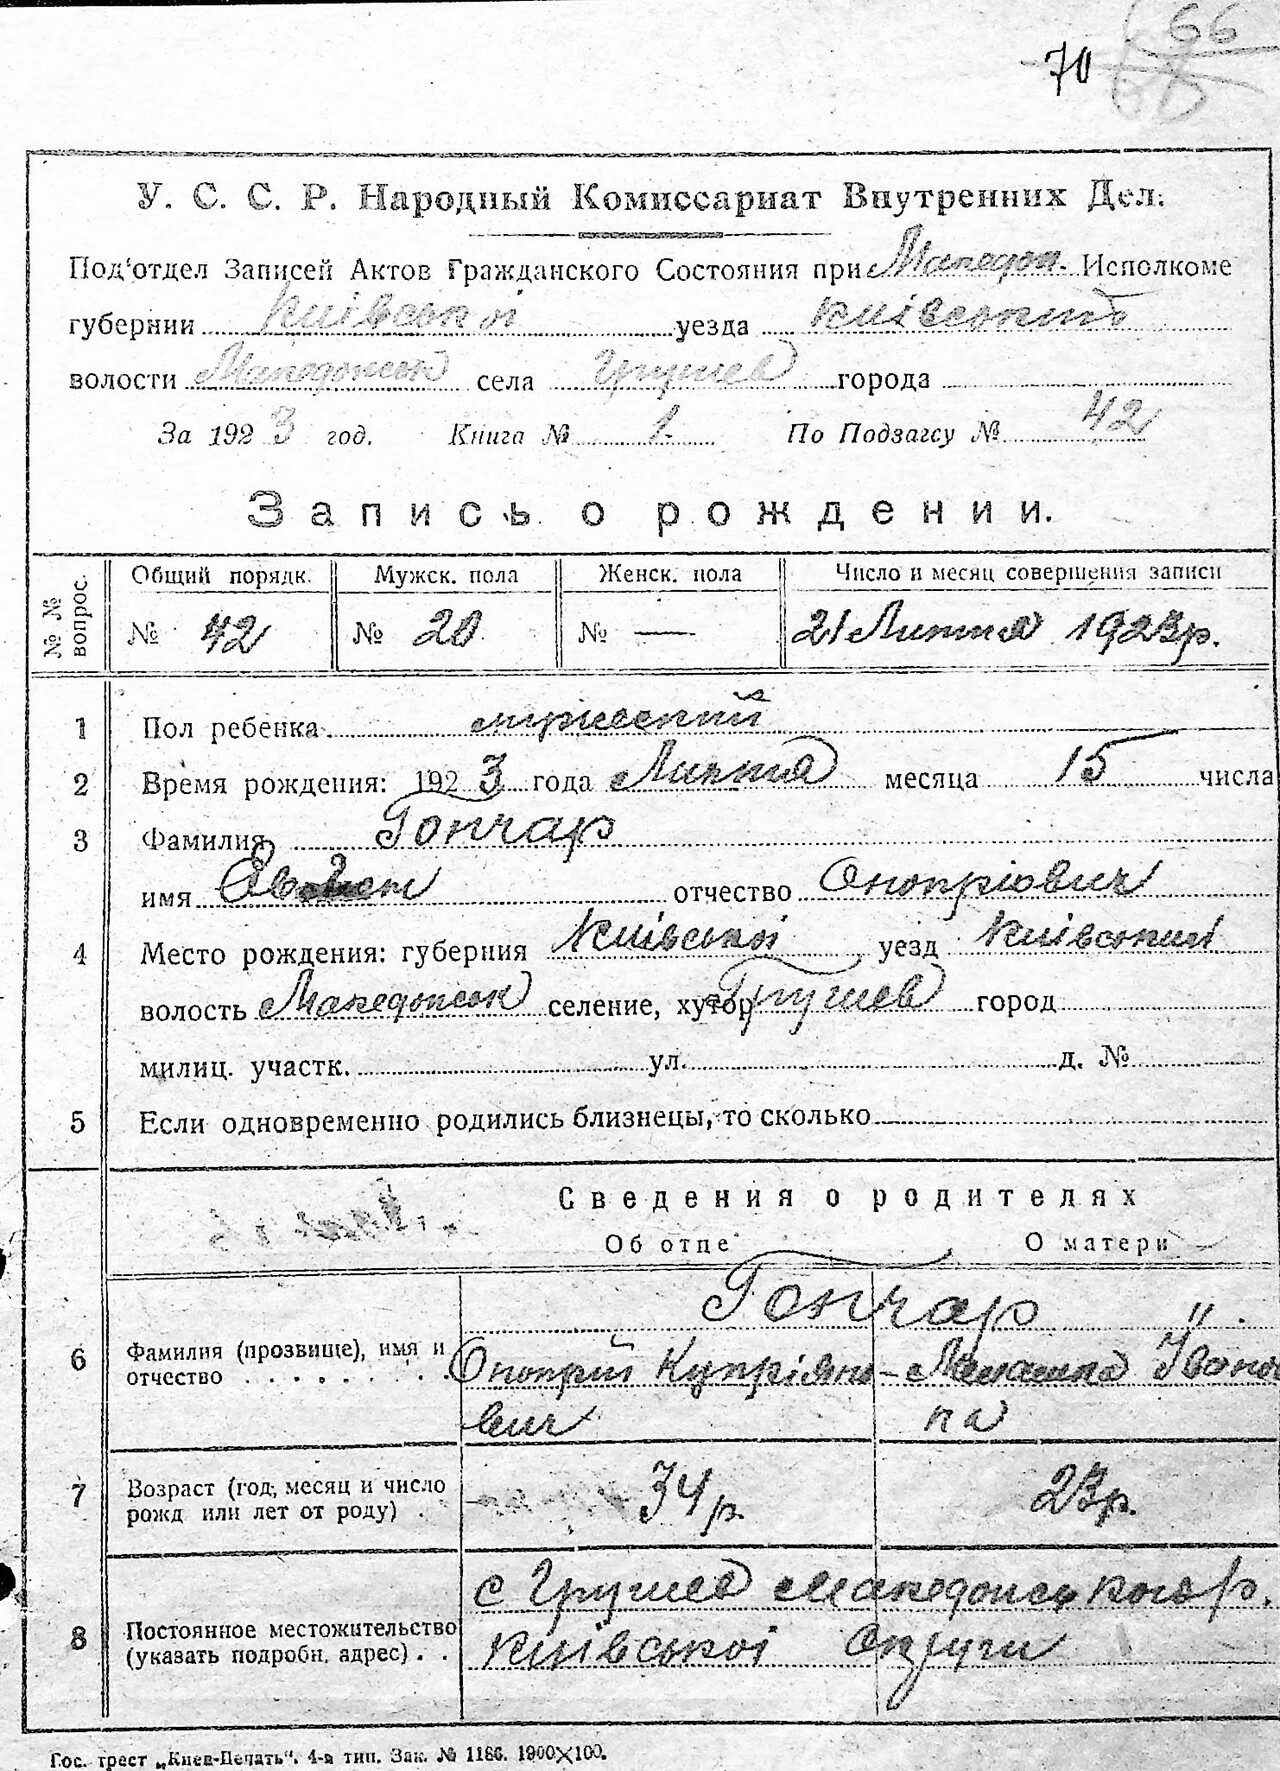 66
70
У. С. С. Р. Народный Комиссариат Внутренних Дел.
Под'отдел Записей Актов Гражданского Состояния при Македон. Исполкоме
губернии Київської уезда Київський
волости Македонськ села Грушев города
За 1923 год. Книга № 1. По Подзагсу № 42
Запись о рождении.
№ № вопрос. Общий порядк. Мужск. пола Женск. пола Число и месяц совершения записи
№ 42 № 20 № — 21 Лютого 1923р.
1 Пол ребенка мужеский
2 Время рождения: 1923 года Лютого месяца 15 числа
3 Фамилия Гончар
имя отчество Оноприович
4 Место рождения: губерния Київської уезд Київський
волость Македонськ селение, хутор Грушев город
милиц. участк. ул. д. №
5 Если одновременно родились близнецы, то сколько
Сведения о родителях
Об отце О матери
Гончар "
6 Фамилия (прозвище), имя и Оноприй Купріяно- Мелашка Івано
отчество вич на
7 Возраст (год, месяц и число 34р. 23р.
рожд или лет от роду)
с Грушев Македонського р.
8 Постоянное местожительство Київської Округи
(указать подробн. адрес)
Гос. трест „Киев-Печать“. 4-я тип. Зак. № 1186. 1900×100.